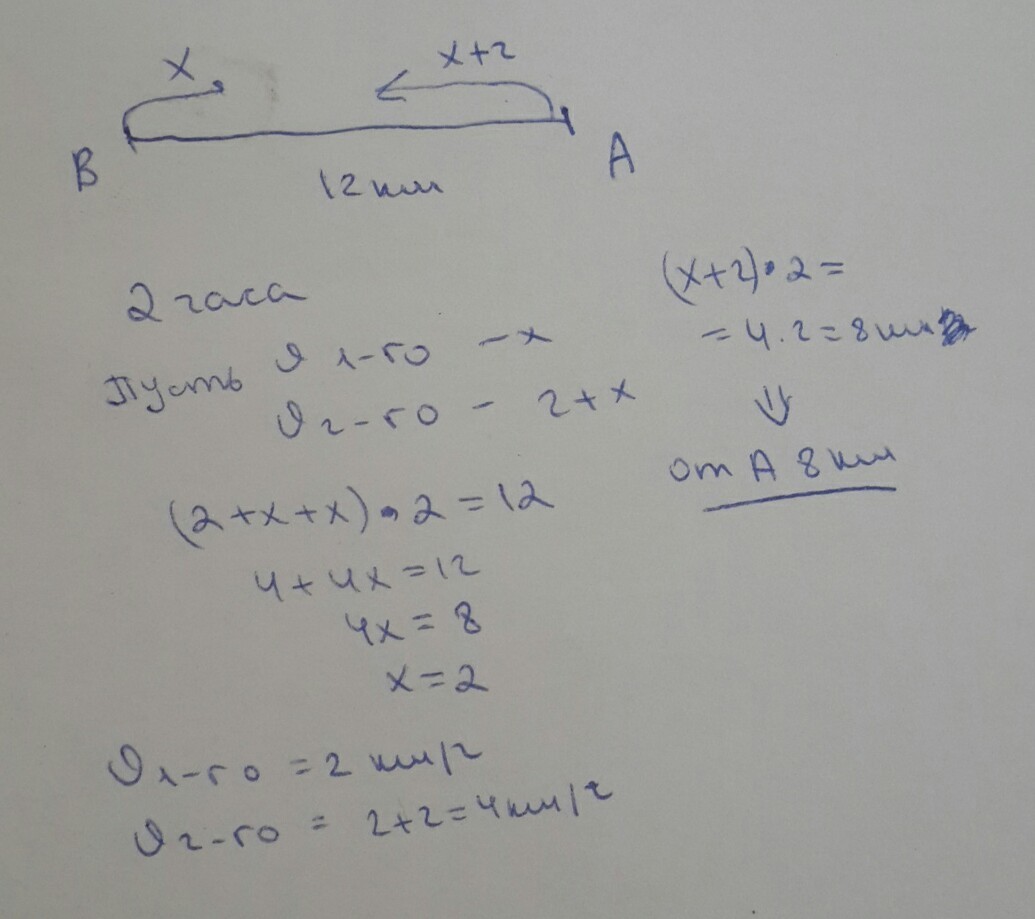 x
x+2
B
A
12 км
2 часа
Пусть υ 1-го - x
υ 2-го - 2+x
(2+x+x)•2=12
4+4x=12
4x=8
x=2
υ 1-го = 2 км/ч
υ 2-го = 2+2=4км/ч
(x+2)•2=
=4.2=8км
⇓
от A 8 км